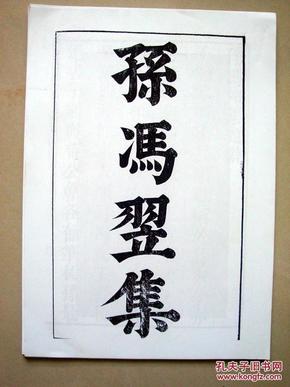 孫馮翌集
孔夫子旧书网
kongfz.com